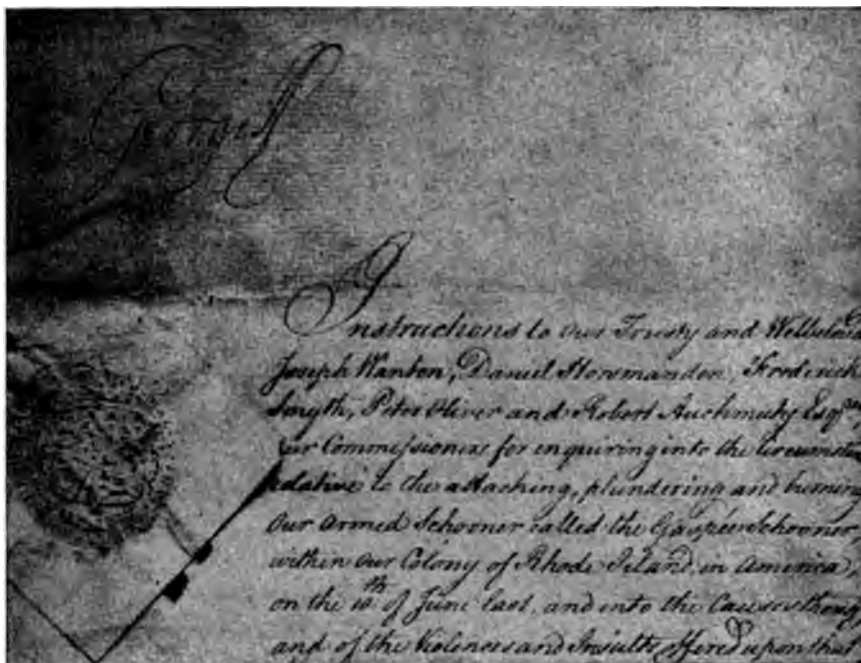 George R
Instructions to Our Trusty and Wellbelov'd
Joseph Wanton, Daniel Horsmanden, Frederick
Smyth, Peter Oliver and Robert Auchmuty Esqrs.
Our Commissioners for enquiring into the Circumstan
relative to the attacking, plundering and burning
Our Armed Schooner called the Gaspée Schooner,
within Our Colony of Rhode Island, in America,
on the 10th of June last, and into the Causes thereof
and of the Violences and Insults offered upon that